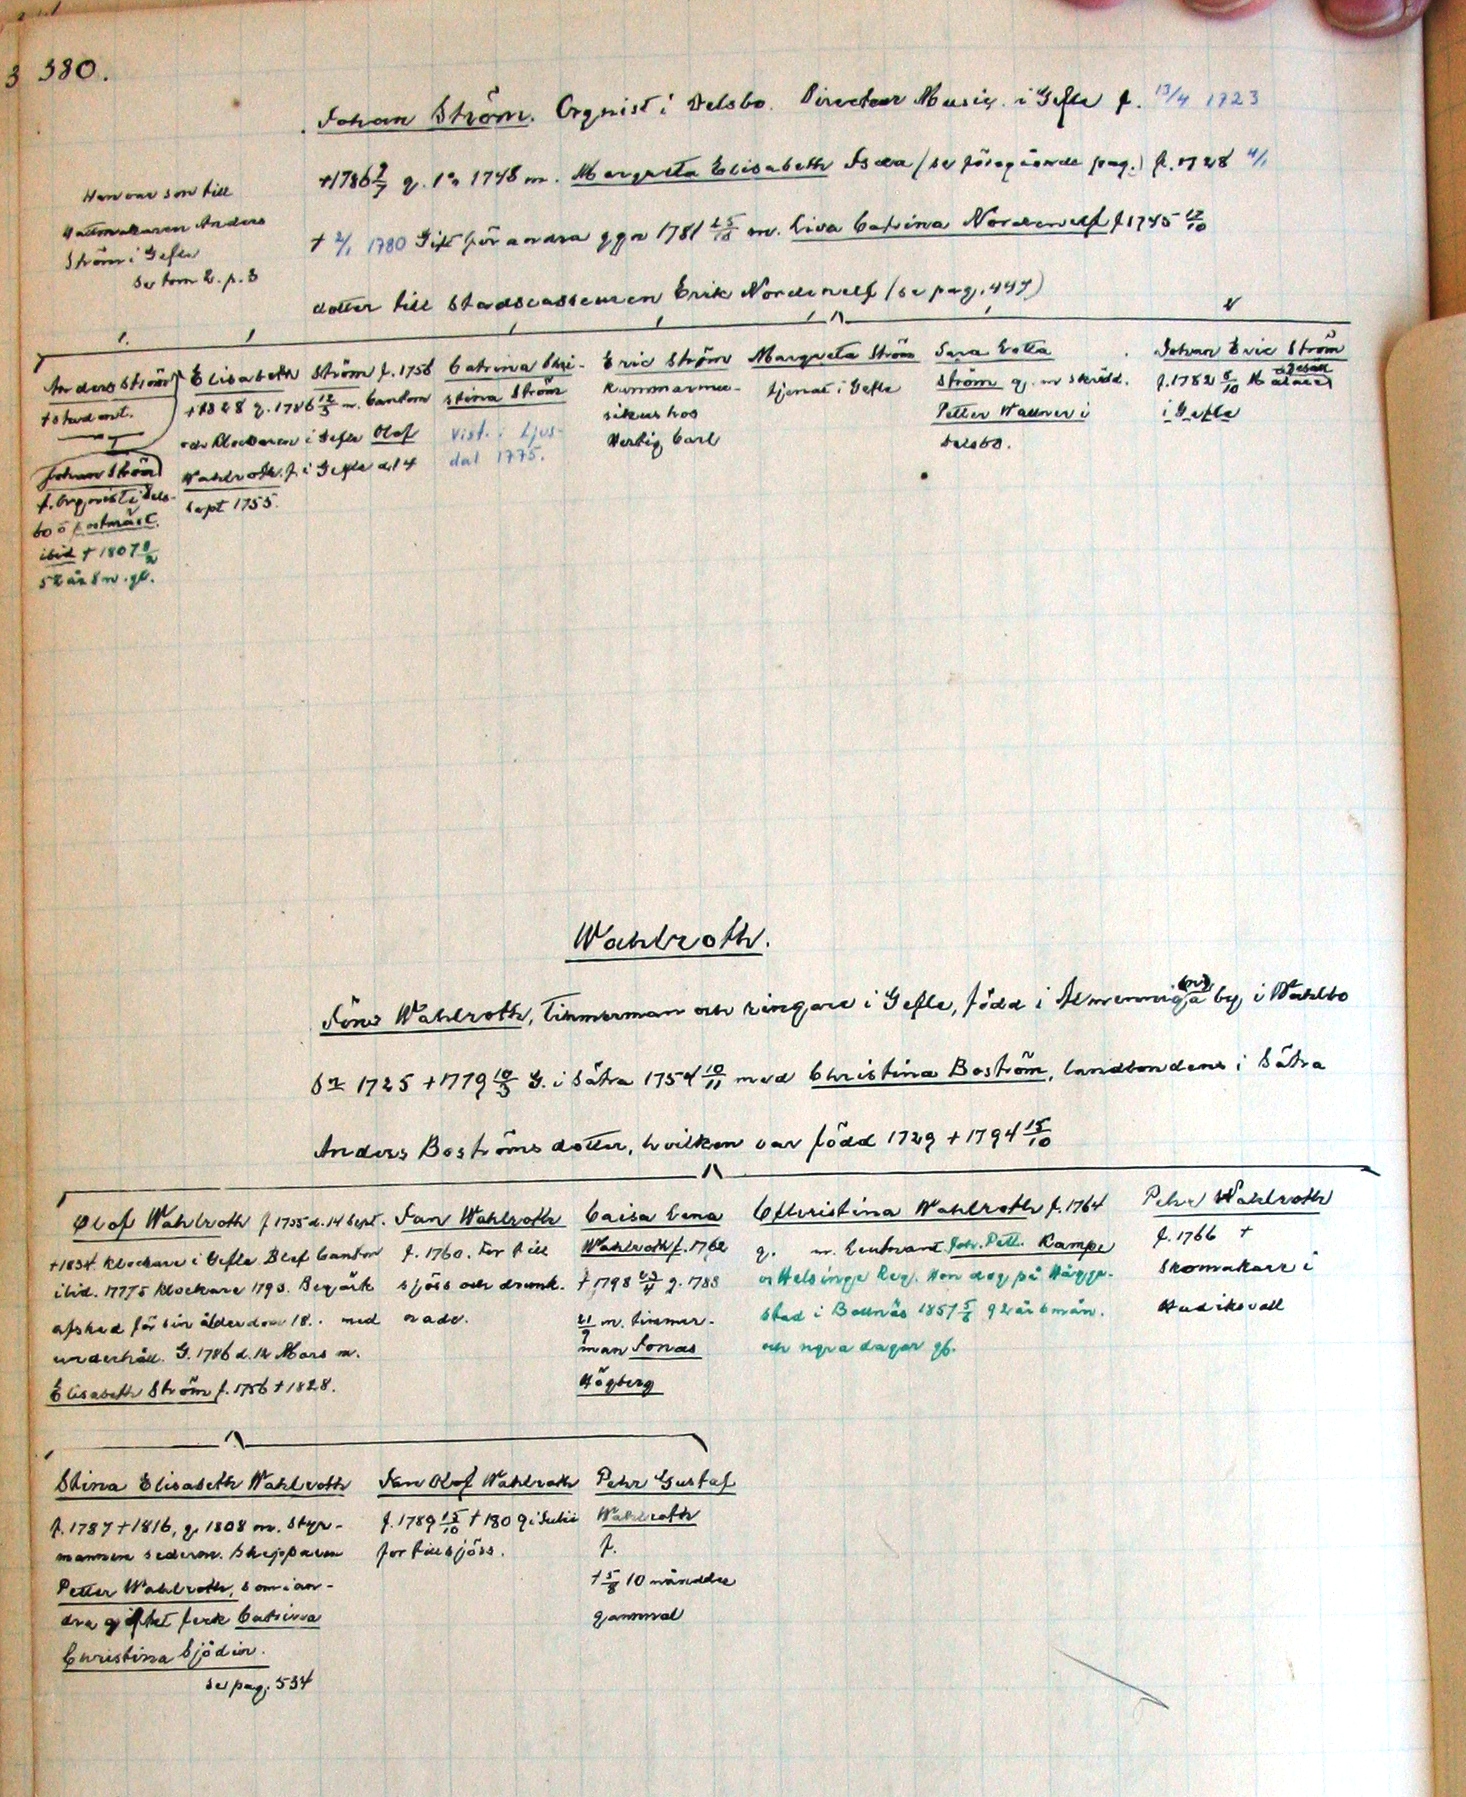 380.
Johan Ström. Orgnist i Delsbo. Directeur Musiq. i Gefle f. 13/4 1723
+1786 7/7 g. 1o 1748 m. Margreta Elisabeth (se föregående pag.) f. 1728 4/1
+ 2/1 1780 Gift för andra ggn 1781 25/10 m. Lisa Catrina Nordenelf f 1745 12/10
dotter till Stadscasseuren Erik Nordenelf (se pag. 447)
Han var son till
Hattmakaren Anders
Ström i Gefle
se tom 2. p. 3
Anders Ström
student.
Johan Ström
f. Orgnist i Dels-
bo o postmäst.
ibid + 1807
52 år 8 m. gl.
Elisabeth Ström f. 1756
+1828 g. 1786 12/3 m. Cantorn
och Klockaren i Gefle Olof
Wahlroth f. i Gefle d. 14
Sept 1755.
Catrina Chri-
stina Ström
vist. i Ljus-
dal 1775.
Eric Ström
Kammarmu-
sikus hos
Hertig Carl
Margreta Ström
tjenat i Gefle
Sara Lotta
Ström g. m skrädd.
Petter Wallner i
Delsbo.
Johan Eric Ström
f. 1782 8/10 Målaregesäll
i Gefle
Wahlroth.
Jöns Wahlroth, Timmerman och ringare i Gefle, född i Allmenninga by i Wahlbo
Sn 1725 +1779 10/3 G. i Sätra 1754 10/11 med Christina Boström, landbondens i Sätra
Anders Boströms dotter, hvilken var född 1729 +1794 15/10
Olof Wahlroth f 1755 d. 14 Sept.
+1834. Klockare i Gefle. Blef Cantor
ibid. 1777 Klockare 1793. Begärt
afsked för sin ålderdom 18.. med
underhåll. G. 1786 d. 12 Mars m.
Elisabeth Ström f. 1756 + 1828.
Jan Wahlroth
f. 1760. For till
sjöss och drunk-
nade.
Caisa Lena
Wahlroth f. 1762
+ 1798 23/4 g. 1788
21/9 m. timmer-
man Jonas
Högberg
Christina Wahlroth f. 1764
g. m. Leutnant Joh. Pett. Kampe
vi Helsinge Reg. Hon dog på Hägge-
stad i Bollnäs 1857 5/8 92 år 6 mån.
och ngra dagar gl.
Pehr Wahlroth
f. 1766 +
Skomakare i
Hudiksvall
Stina Elisabeth Wahlroth
f. 1787 + 1816, g. 1808 m. Styr-
mannen sederm. Skepparen
Petter Wahlroth, som i an-
dra giftet fick Catrina
Christina Sjödin.
se pag. 534
Jan Olof Wahlroth
f. 1789 15/10 + 1809 i Julii
for till sjöss.
Pehr Gustaf
Wahlroth
f.
+ 5/8 10 månader
gammal